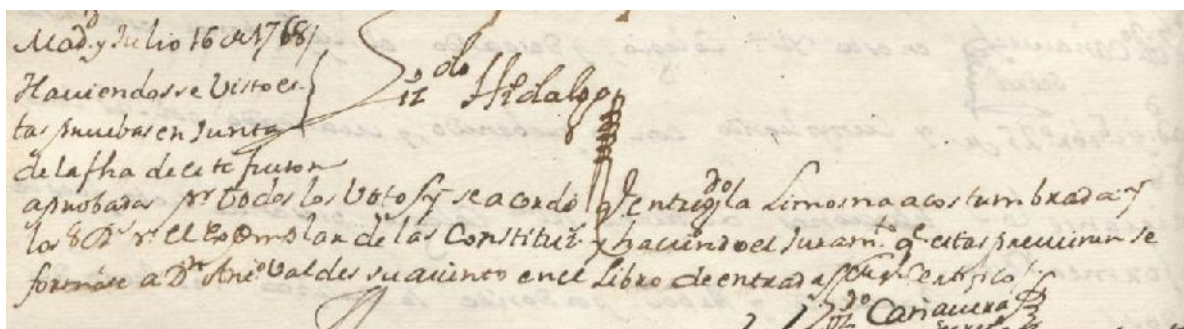 Mad.d y Julio 16 de 1768
Haviendosse Visto es-
tas pruebas en Junta
de la fha de este fueron
Lz.do Hidalgo
aprobadas pr todos los Votos y se acordó q entregdo la Limosna acostumbrada y
los 8 Rs pr el Exemplar de las Constituz.s y haciendo el Juram.to q estas previenen se
formáse a Dn Anto Valdes su asiento en el Libro de entradas Certifico
Cañavera